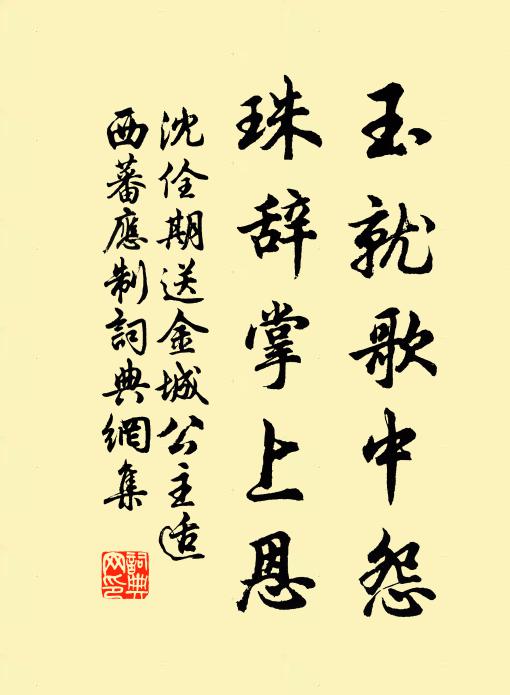 玉就歌中怨
珠辞掌上恩
沈佺期送金城公主适
西蕃應制詞典網集
詞典
网印